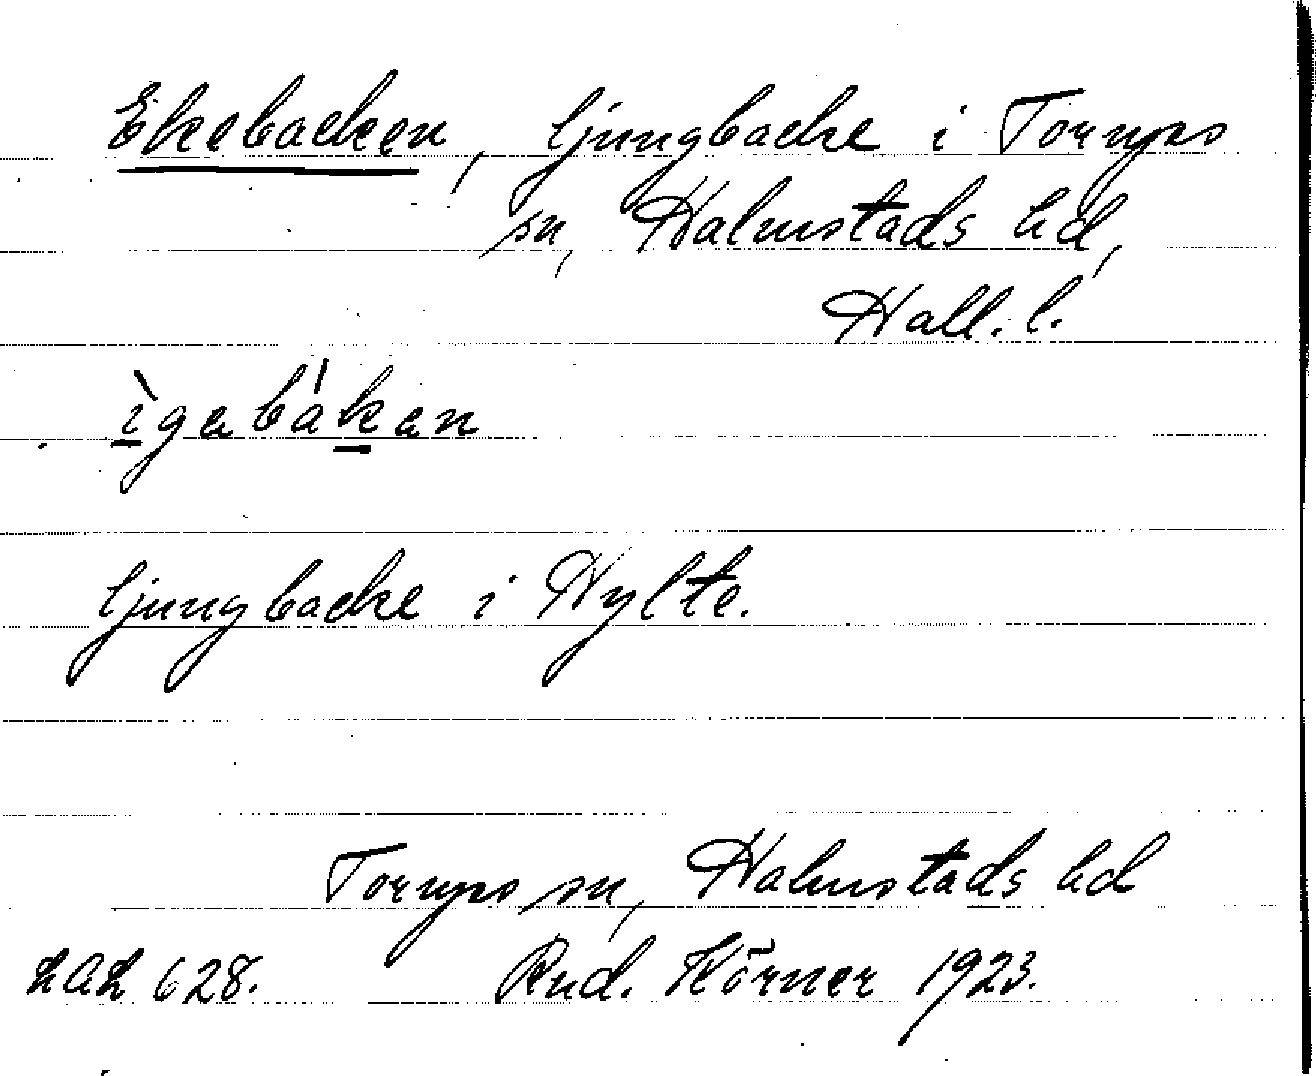 Ekebacken, ljungbacke i Torups
sn, Halmstads hd,
Hall. l.
ìgabákan
ljungbacke i Hylte.
Torups sn, Halmstads hd
LAL 628. Rud. Körner 1923.